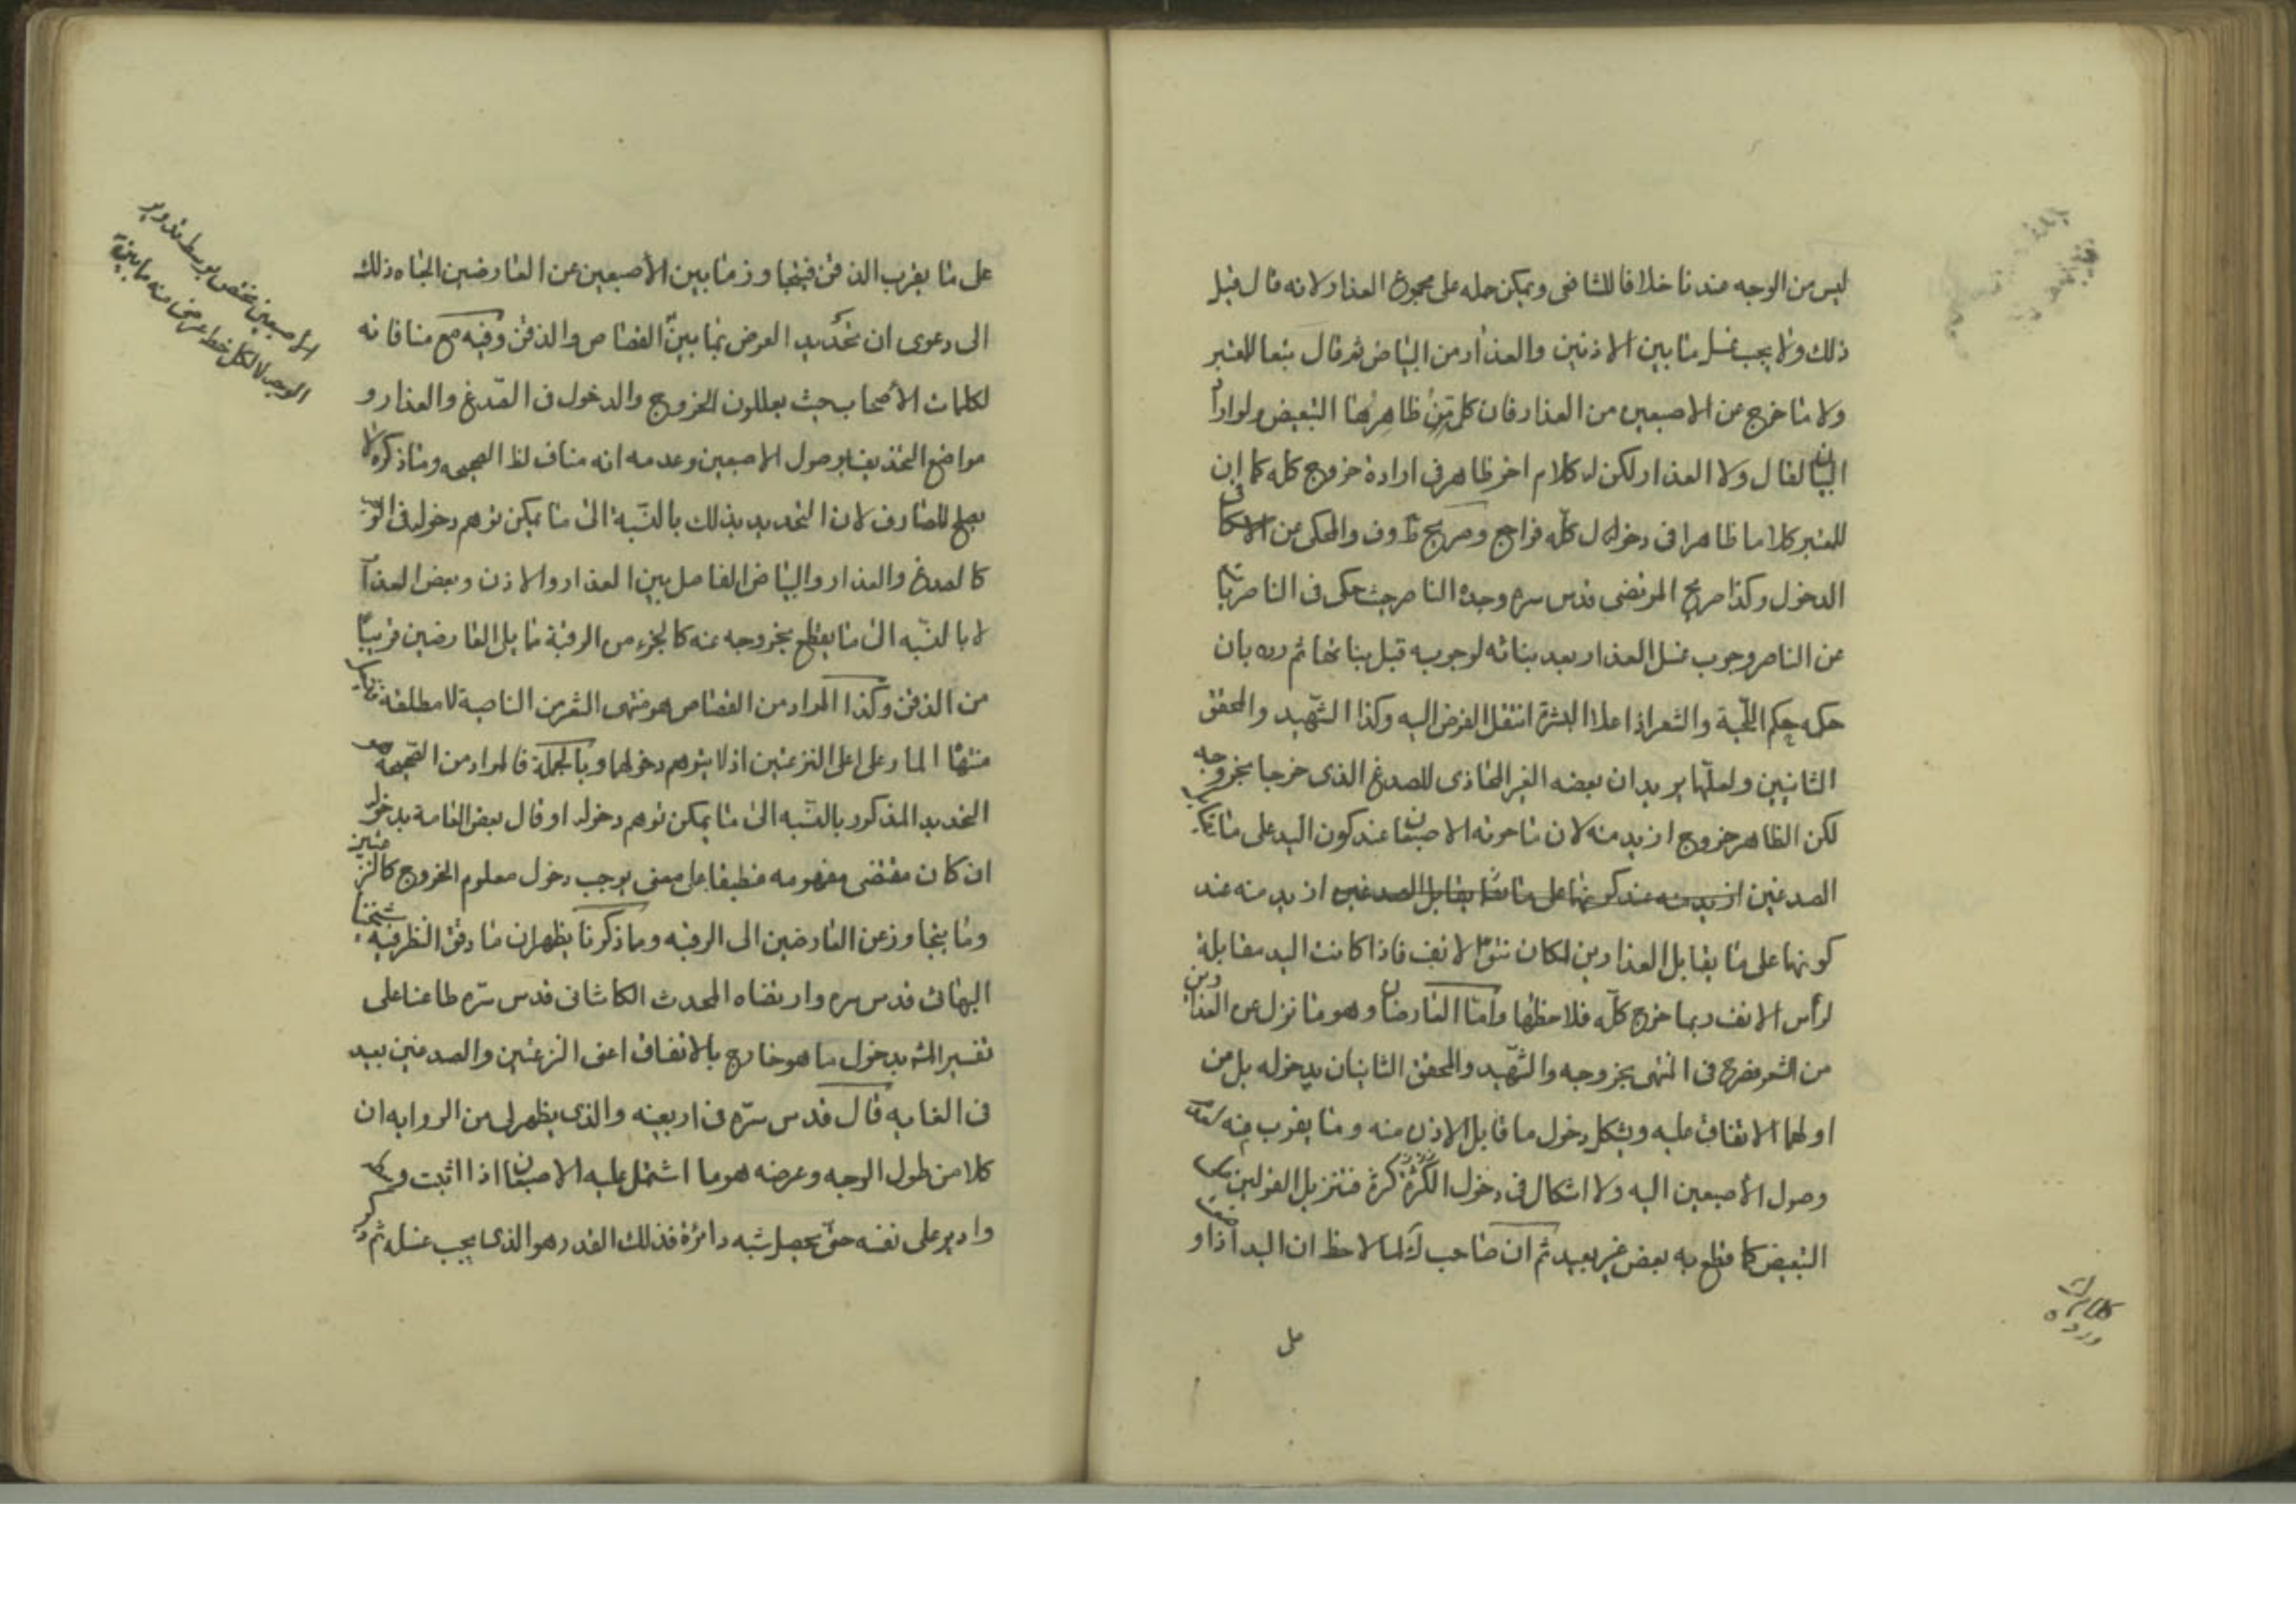 ليس من الوجه عندنا خلافا للشافعى ويمكن حمله على مجموع العذار لانه قال قبل
ذلك ولا يجب غسل ما بين الاذنين والعذار من البياض ثم قال تبعا للمعتبر
ولا ما خرج عن الاصبعين من العذار فان كلمة من ظاهرها التبعيض ولو اراد
البيان لقال ولا العذار لكن له كلام اخر ظاهر فى ارادة خروج كله كما ان
للمعتبر كلاما ظاهرا فى دخول كله فراجع وصريح ف والمحكى عن
الدخول وكذا صريح المرتضى قدس سره وجده الناصر حيث حكى فى الناصريات
عن الناصر وجوب غسل العذار بعد بناته لوجوبه قبل بناتها ثم رده بان
حكمه حكم اللحية والشعر اذا علا البشرة انتقل الفرض اليه وكذا الشهيد والمحقق
الثانيين ولعلهما يريدان بعضه الغير المحاذى للصدغ الذى خرجا بخروجه
لكن الظاهر خروج ازيد منه لان ما حوته الاصبعان عند كون اليد على ما
الصدغين ازيد منه عند كونها على ما يقابل الصدغين ازيد منه عند
كونها على ما يقابل العذارين لمكان نتوّ الانف فاذا كانت اليد مقابلة
لرأس الانف ربما خرج كله فلاحظها وامّا العارضان وهو ما نزل عن العذارين
من الشعر فصرح فى المنتهى بخروجه والشهيد والمحقق الثانيان بدخوله بل من
اولهما الاتفاق عليه ويشكل دخول ما قابل الاذن منه وما يقرب منه لعدم
وصول الأصبعين اليه ولا اشكال فى دخول فتنزيل القولين
التبعيض كما قطع به بعض غير بعيد ثم ان صاحب ك لما لاحظ ان اليد اذا و
على
على ما يقرب الذقن فيتجاوز ما بين الأصبعين عن العارضين الجئاه ذلك
الى دعوى ان تحديد العرض بما بين القصاص والذقن وفيه مع منافاته
لكلمات الأصحاب حيث يعللون الخروج والدخول فى الصّدغ والعذار و
مواضع التحذيف بوصول الاصبعين وعدمه انه مناف لظ الصحيحه وما ذكره لا
يصلح للصارف لان التحديد بذلك بالنسّبة الى ما يمكن توهم دخوله فى الوجه
كالصدغ والعذار والبياض الفاصل بين العذار والاذن وبعض العذار
لا بالنسّبه الى ما يقطع بخروجه عنه كالجزء من الرقبة مما يلى العارضين قريبا
من الذقن وكذا المراد من القصاص هو منتهى الشعر من الناصية لا مطلقه
منتهاه المار على اعلى النزعتين اذ لا يتوهم دخولهما وبالجملة فالمراد من الصّحيحه هو
التحديد المذكور بالنسّبه الى ما يمكن توهم دخوله او قال بعض العامة بدخوله
ان كان مقتضى مفهومه منطبقا على معنى يوجب دخول معلوم الخروج كالنزعتين
وما يتجاوز عن العارضين الى الرقبه وما ذكرنا يظهر ان ما دقق النظر فيه شيخنا
البهائى قدس سره وارتضاه المحدث الكاشانى قدس سّره طاعنا على
تفسير المشه بدخول ما هو خارج بالاتفاق اعنى النزعتين والصدغين بعيد
فى الغايه قال قدس سّره فى اربعينه والذى يظهر لى من الروايه ان
كلا من طول الوجه وعرضه هو ما اشتمل عليه الاصبعان اذا اثبت وسطه
وادير على نفسه حتى يحصل شبه دائرة فذلك القدر هو الذى يجب غسله ثم ذكر
الوجه لا لكل خط عرضى منه ما بينه